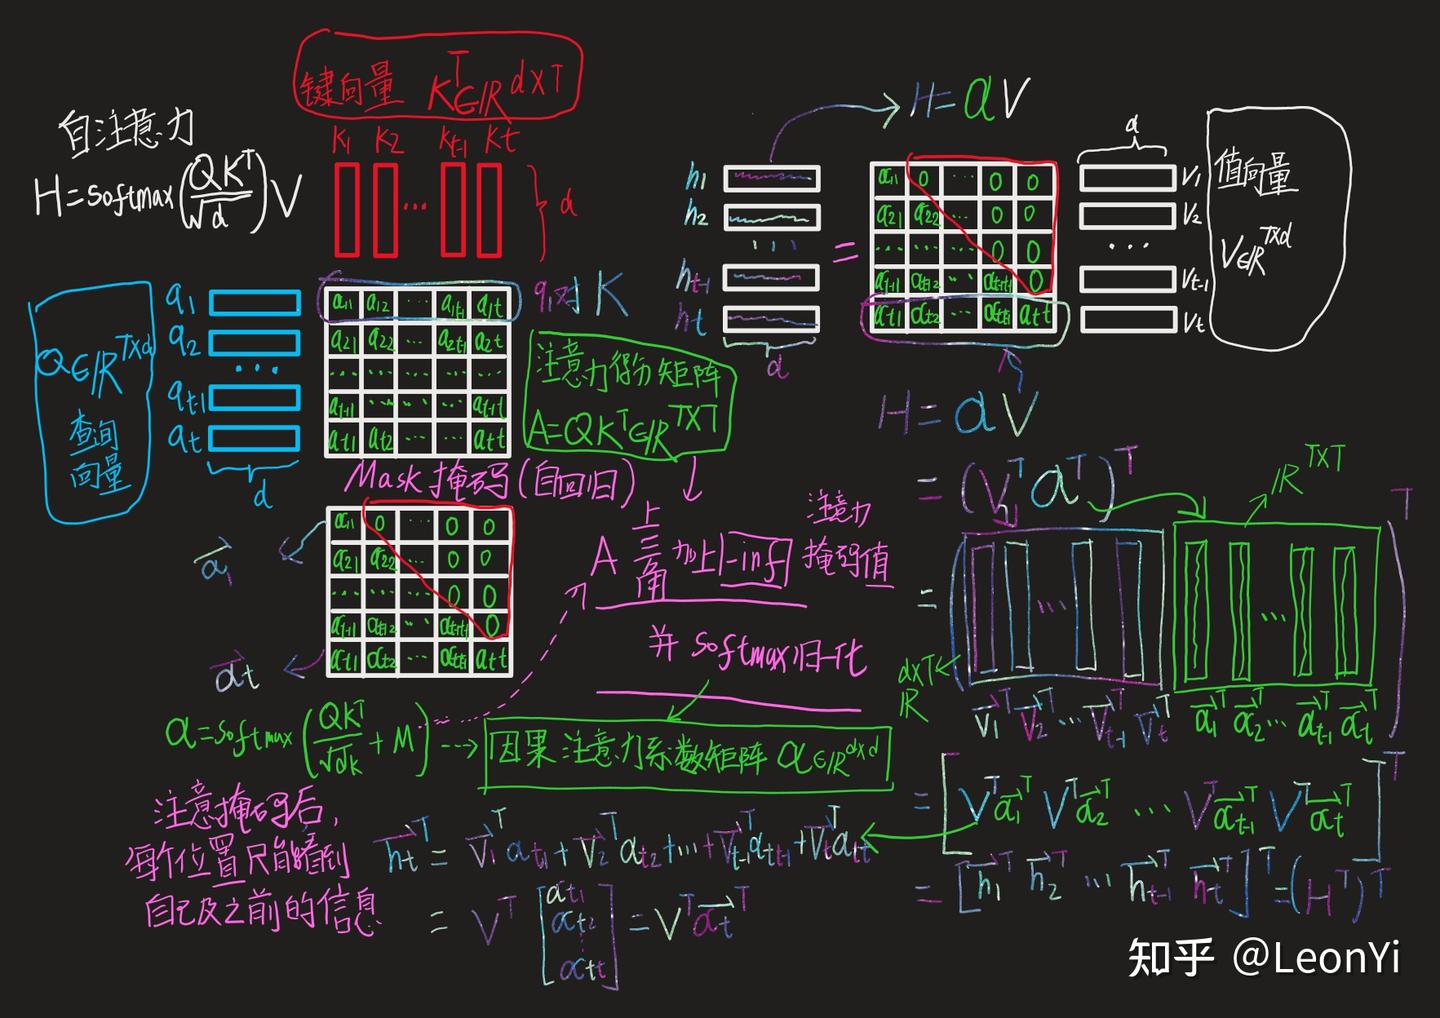 自注意力
H=softmax(QKᵀ/√d)V
键向量 Kᵀ∈ℝ^{d×T}
k₁ k₂ k_{t-1} k_t
...
d
Q∈ℝ^{T×d}
查询
向量
q₁
q₂
...
q_{t-1}
q_t
d
a₁₁ a₁₂ ... a_{1t-1} a_{1t}
a₂₁ a₂₂ ... a_{2t-1} a_{2t}
... ... ... ... ...
a_{t-1} ... ... ... a_{t-1t}
a_{t1} a_{t2} ... ... a_{tt}
q₁对K
注意力得分矩阵
A=QKᵀ∈ℝ^{T×T}
Mask 掩码(自回归)
α₁₁ 0 ... 0 0
α₂₁ α₂₂ ... 0 0
... ... ... 0 0
α_{t-11} α_{t-12} ... α_{t-1t-1} 0
α_{t1} α_{t2} ... α_{tt-1} α_{tt}
α₁
α_t
A 上三角 加上 -inf
注意力
掩码值
并 softmax归一化
α=softmax(QKᵀ/√d_k + M)
因果注意力系数矩阵 α∈ℝ^{d×d}
注意掩码后,
每个位置只能看到
自己及之前的信息
h_tᵀ = v₁ᵀα_{t1}+v₂ᵀα_{t2}+...+v_{t-1}ᵀα_{tt-1}+v_tᵀα_{tt}
= Vᵀ[α_{t1} α_{t2} ⋮ α_{tt}] = Vᵀα_tᵀ
H=αV
h₁
h₂
...
h_{t-1}
h_t
d
=
α₁₁ 0 ... 0 0
α₂₁ α₂₂ ... 0 0
... ... ... 0 0
α_{t-11} α_{t-12} ... α_{t-1t-1} 0
α_{t1} α_{t2} ... α_{tt-1} α_{tt}
d
v₁
v₂
...
v_{t-1}
v_t
值向量
V∈ℝ^{T×d}
H=αV
=(Vᵀαᵀ)ᵀ
ℝ^{T×T}
= ( ... ... )ᵀ
ℝ^{d×T}
v₁ᵀ v₂ᵀ ... v_{t-1}ᵀ v_tᵀ
α₁ᵀ α₂ᵀ ... α_{t-1}ᵀ α_tᵀ
=[Vᵀα₁ᵀ Vᵀα₂ᵀ ... Vᵀα_{t-1}ᵀ Vᵀα_tᵀ]ᵀ
=[h₁ᵀ h₂ᵀ ... h_{t-1}ᵀ h_tᵀ]ᵀ=(Hᵀ)ᵀ
知乎 @LeonYi